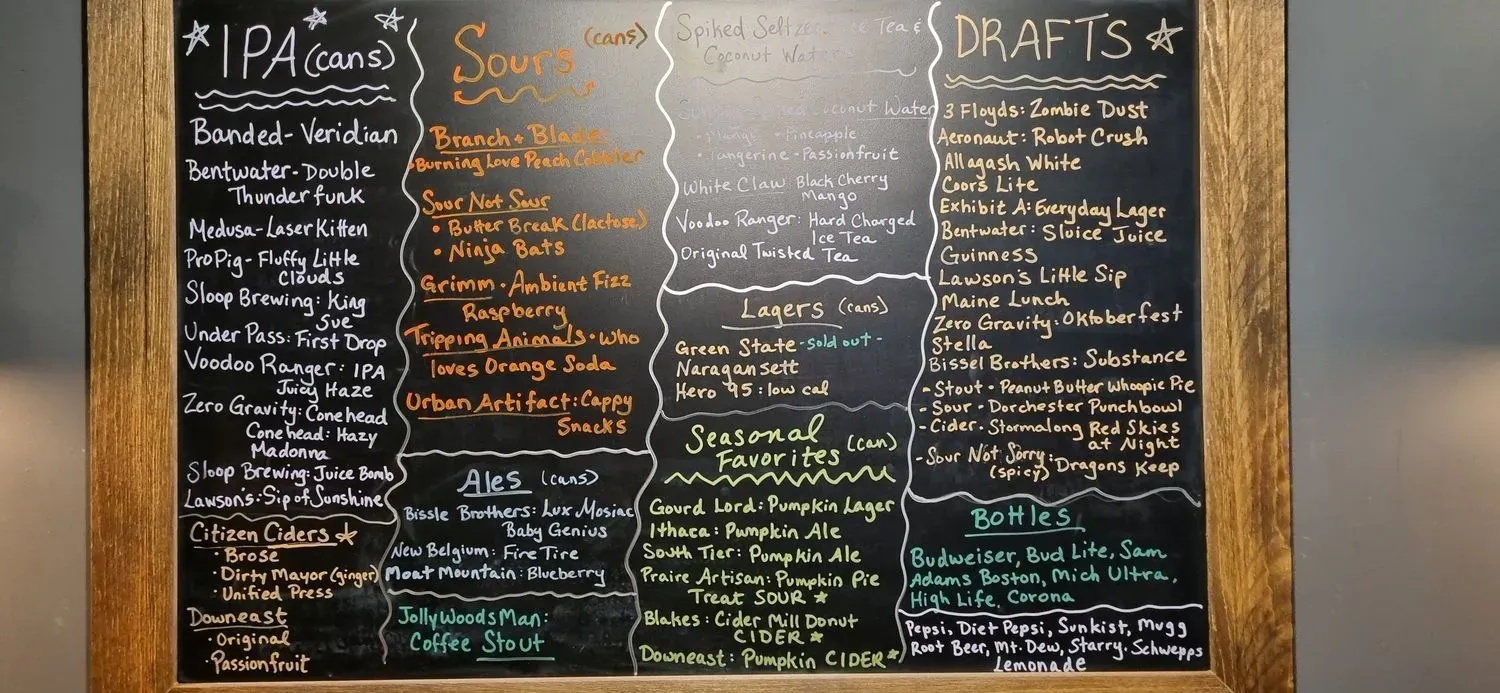 IPA (cans)
Banded-Veridian
Bentwater-Double
Thunder funk
Medusa-Laser Kitten
ProPig-Fluffy Little
Clouds
Sloop Brewing: King
Sue
Under Pass: First Drop
Voodoo Ranger: IPA
Juicy Haze
Zero Gravity: Conehead
Conehead: Hazy
Madonna
Sloop Brewing: Juice Bomb
Lawson's: Sip of Sunshine
Citizen Ciders
• Brose
• Dirty Mayor (ginger)
• Unified Press
Downeast
• Original
• Passionfruit
Sours (cans)
Branch + Blade
• Burning Love Peach Cobbler
Sour Not Sour
• Butter Break (lactose)
• Ninja Bats
Grimm • Ambient Fizz
Raspberry
Tripping Animals • Who
loves Orange Soda
Urban Artifact: Cappy
Snacks
Ales (cans)
Bissle Brothers: Lux Mosiac
Baby Genius
New Belgium: Fire Tire
Moat Mountain: Blueberry
JollyWoodsMan:
Coffee Stout
Spiked Seltzer Tea &
Coconut Water
Coconut Water
• Pineapple
• Tangerine • Passionfruit
White Claw Black Cherry
Mango
Voodoo Ranger: Hard Charged
Ice Tea
Original Twisted Tea
Lagers (cans)
Green State - sold out -
Naragansett
Hero 95: low cal
Seasonal (can)
Favorites
Gourd Lord: Pumpkin Lager
Ithaca: Pumpkin Ale
South Tier: Pumpkin Ale
Praire Artisan: Pumpkin Pie
Treat SOUR
Blakes: Cider Mill Donut
CIDER
Downeast: Pumpkin CIDER
DRAFTS
3 Floyds: Zombie Dust
Aeronaut: Robot Crush
Allagash White
Coors Lite
Exhibit A: Everyday Lager
Bentwater: Sluice Juice
Guinness
Lawson's Little Sip
Maine Lunch
Zero Gravity: Oktoberfest
Stella
Bissel Brothers: Substance
- Stout - Peanut Butter Whoopie Pie
- Sour - Dorchester Punchbowl
- Cider - Stormalong Red Skies
at Night
- Sour Not Sorry: Dragons Keep
(spicy)
Bottles
Budweiser, Bud Lite, Sam
Adams Boston, Mich Ultra,
High Life, Corona
Pepsi, Diet Pepsi, Sunkist, Mugg
Root Beer, Mt. Dew, Starry. Schwepps
Lemonade